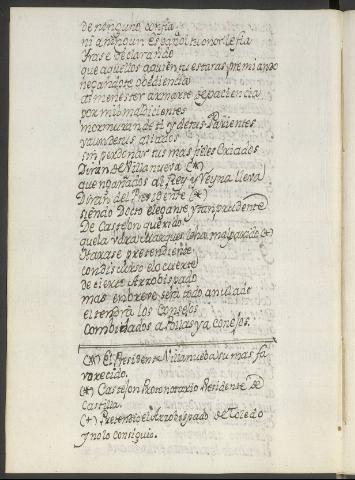 de ninguno confia
ni aningun español tu onor le fia
Yrase declarando
que aquellos aquien tu estaras premiando
negandote obediencia
as menester armarte de paciencia
por mil maldicientes
mormuran de ti y de tus Parientes
y aun de tus aliados
sin perdonar tus mas fieles Criados
Diran de Villanueva (*)
que engañados al Rey y Reyna lleva
Diran del Presidente (*)
siendo Docto elegante y tan prudente
De Castejon querido
que la vara Marques le ha mal parado (+)
pretendiente
con discurso eloquente
de cierto Arzobispado
mas en breve será todo anillado
el tendra los Consejos
combidados a Pollas y a conejos.
(*) El Presidente Villanueba su mas fa
vorecido.
(*) Castejon Protonotario Presidente de
Castilla.
(+) Pretendio el Arzobispado de Toledo
y no lo consiguio.